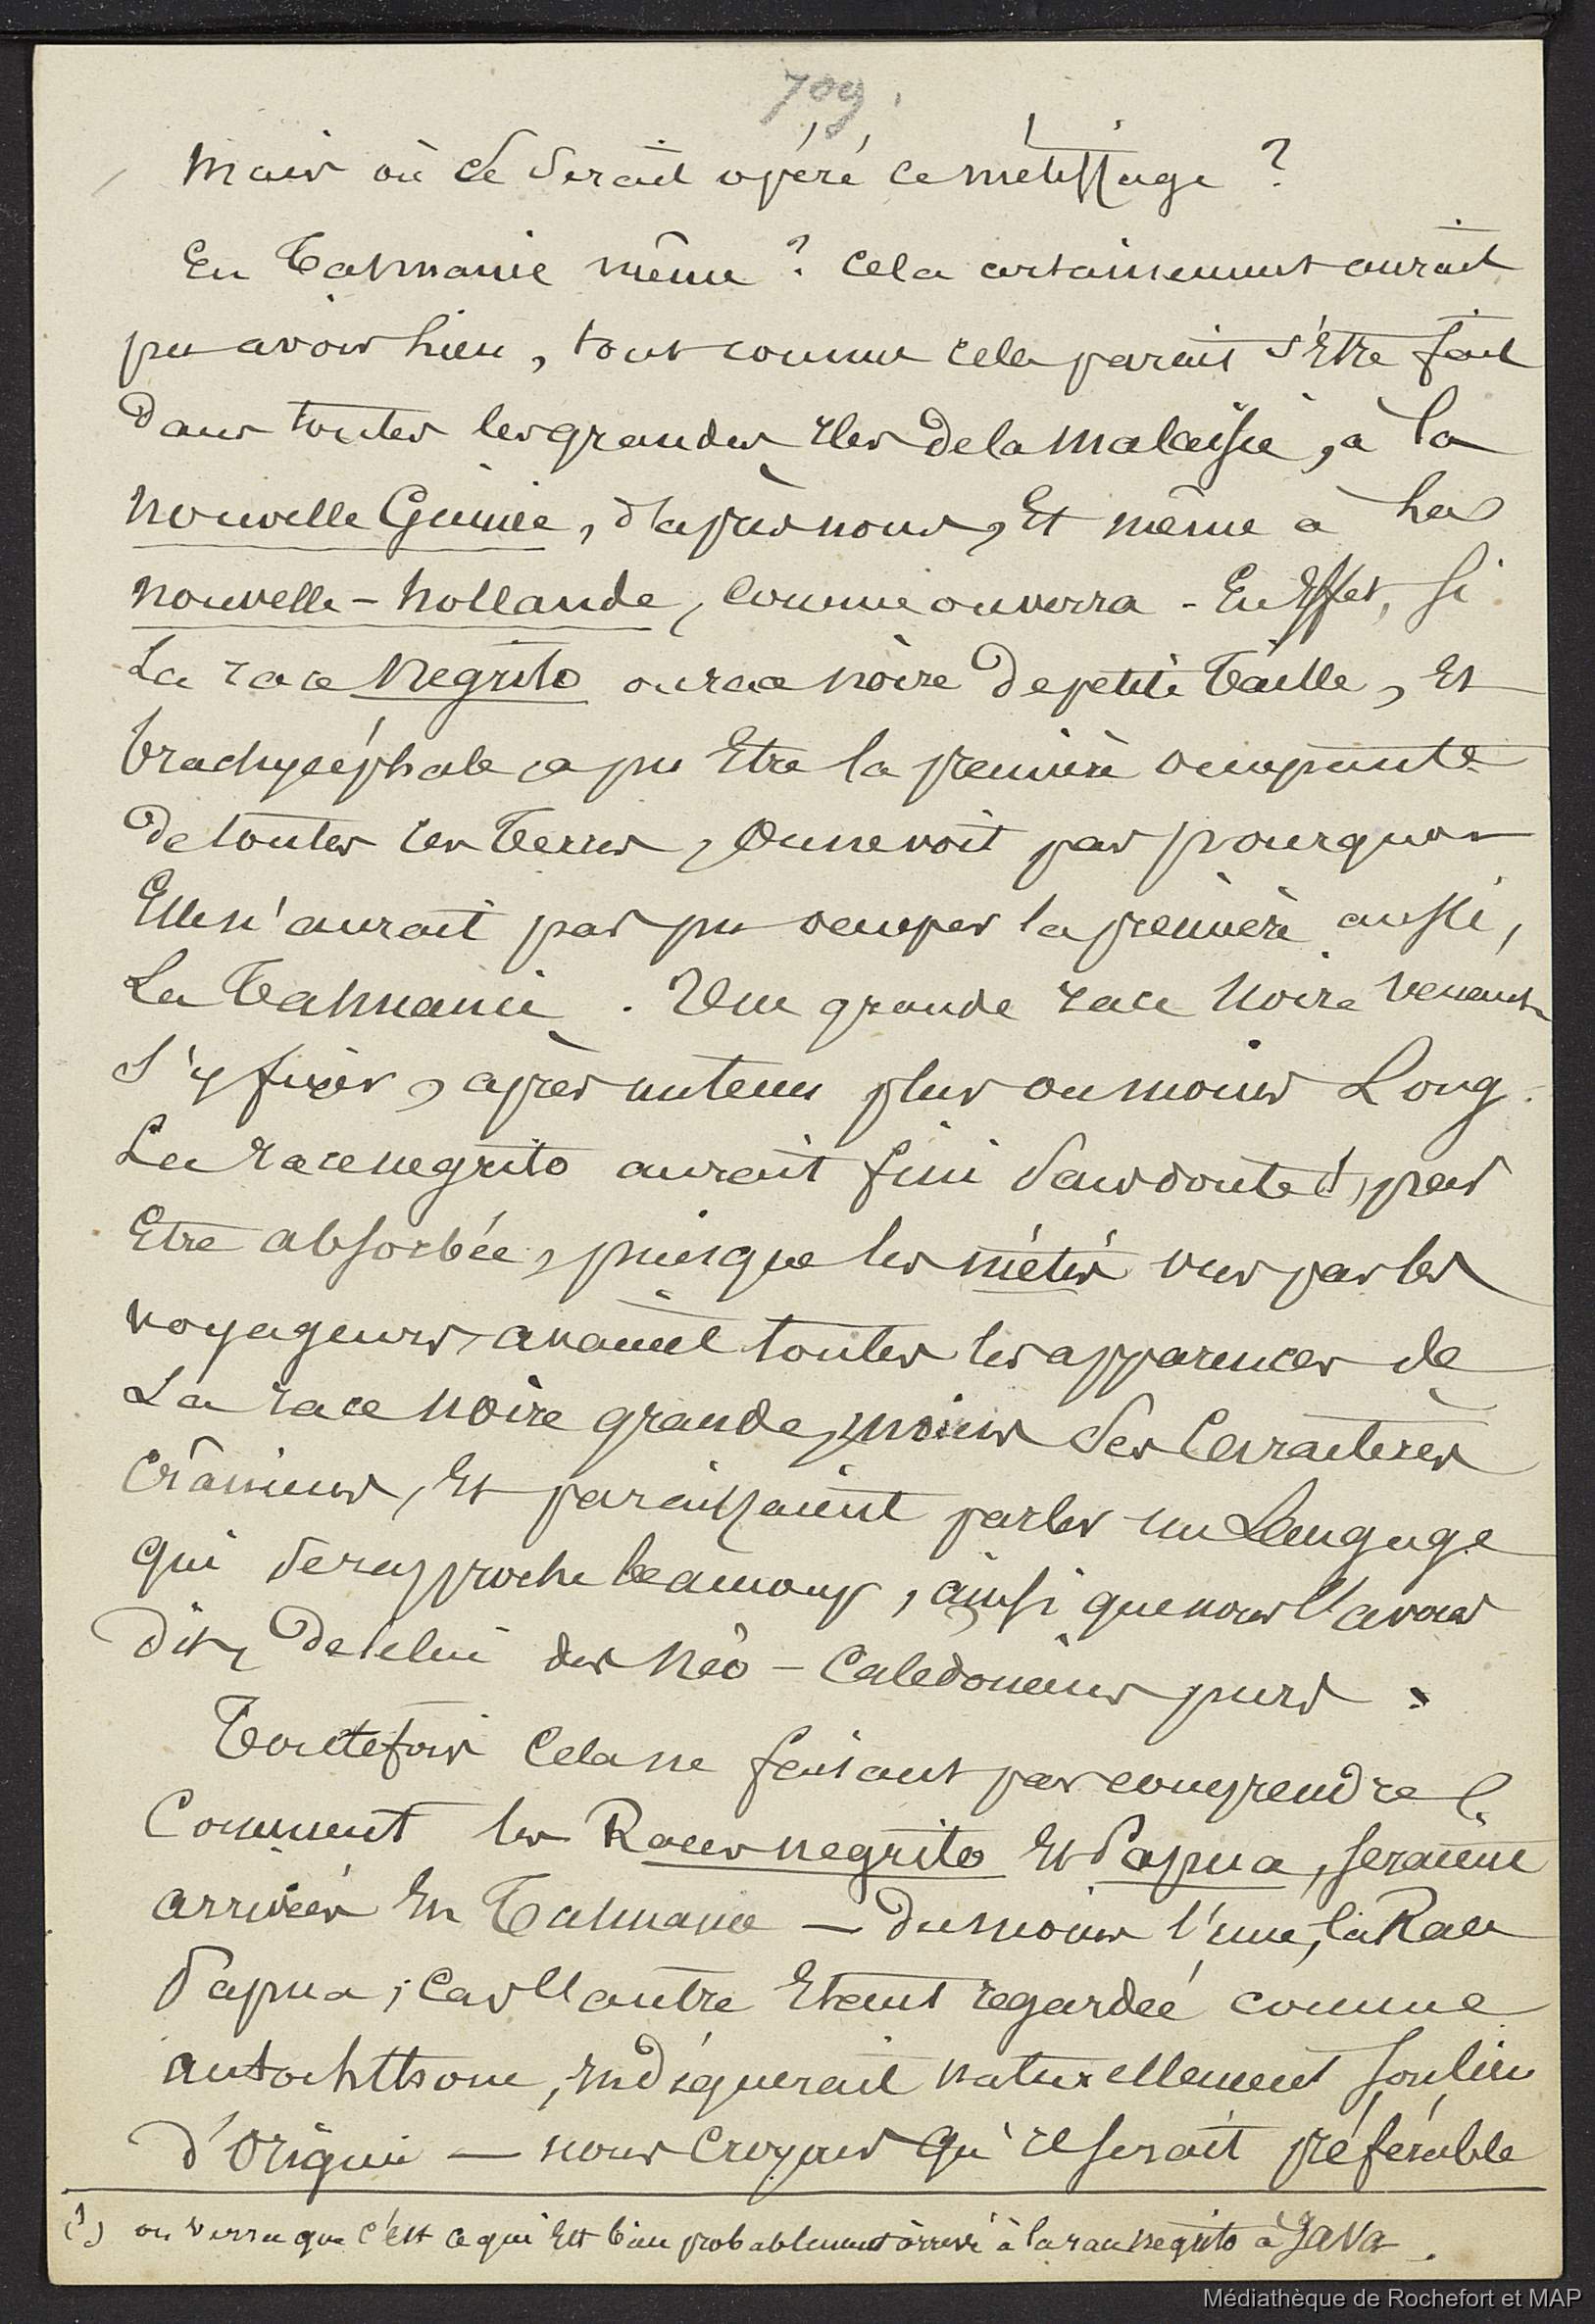 709.
Mais où se serait opéré ce métissage ?
En Tasmanie même ? Cela certainement aurait
pu avoir lieu, tout comme cela parait s'être fait
dans toutes les grandes iles de la Malaisie, à la
Nouvelle Guinée, d'après nous, et même à la
Nouvelle-Hollande, comme on verra - En effet, si
la race Negrito ou race noire de petite taille, et
brachycéphale a pu être la première occupante
de toutes ces terres, on ne voit pas pourquoi
elle n'aurait pas pu occuper la première aussi,
La Tasmanie. Une grande race noire venant
s'y fixer, après un tems plus ou moins Long.
La race negrito aurait fini sans doute (1), par
être absorbée, puisque les métis vus par les
voyageurs, avaient toutes les apparences de
La race noire grande, moins ses Caractères
crâniens, et paraissaient parler un Langage
qui se rapproche beaucoup, ainsi que nous l'avons
dit, de celui des Néo-Calédoniens purs.
Toutefois Cela ne faisant pas comprendre
Comment les Races negrito et Papua, seraient
arrivées en Tasmanie — du moins l'une, la Race
Papua ; car l'autre étant regardée comme
autochttone, indiquerait naturellement son lieu
d'origine — nous croyons qu'il serait préférable
(1) on verra que c'est ce qui est bien probablement arrivé à la race negrito à Java.
Médiathèque de Rochefort et MAP